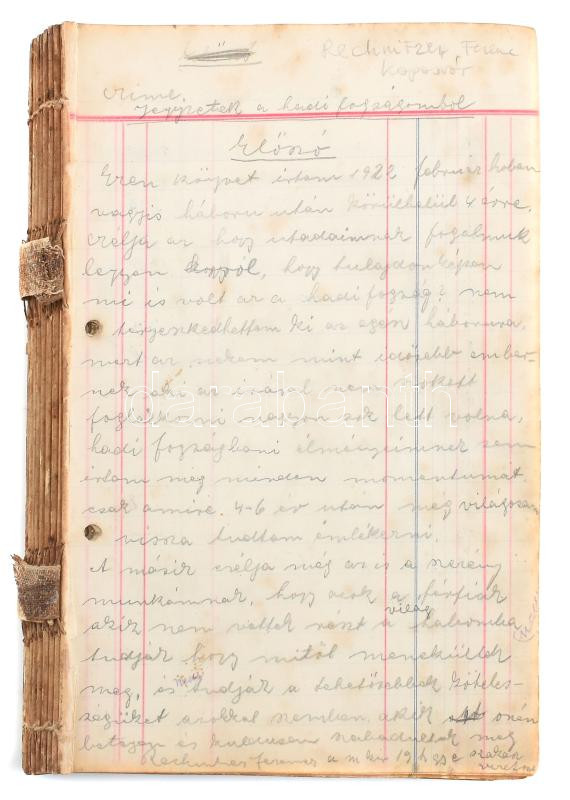 Rechnitzer Ferenc
Kaposvár
Címe
Jegyzetek a hadi fogságomból
Előszó
Ezen könyvet irtam 1922 február hoban
vagyis háboru után körülbelül 4 évre.
Célja az hogy utodaimnak fogalmuk
legyen arról, hogy tulajdonképen
mi is volt az a hadi fogság? nem
terjeszkedhettem ki az egész háborura,
mert az nekem mint idősebb ember-
nek aki az irással nem szokott
foglalkozni nagyon sok lett volna,
hadi fogságbani élményeimnek sem
irtam meg minden momentumát
csak amire 4-6 év utan még világosan
vissza tudtam emlékezni.
A másik célja még az is a szerény
munkámnak, hogy azok a férfiak
világ
akik nem vettek részt a háboruba
tudják hogy mitől menekültek
meg, és tudják a tehetősebbek köteles-
ségüket azokkal szemben akik onén
betegen és kulcsosan szabadultak meg
Rechnitzer Ferenc a m kir 19 h gy e
darabanth